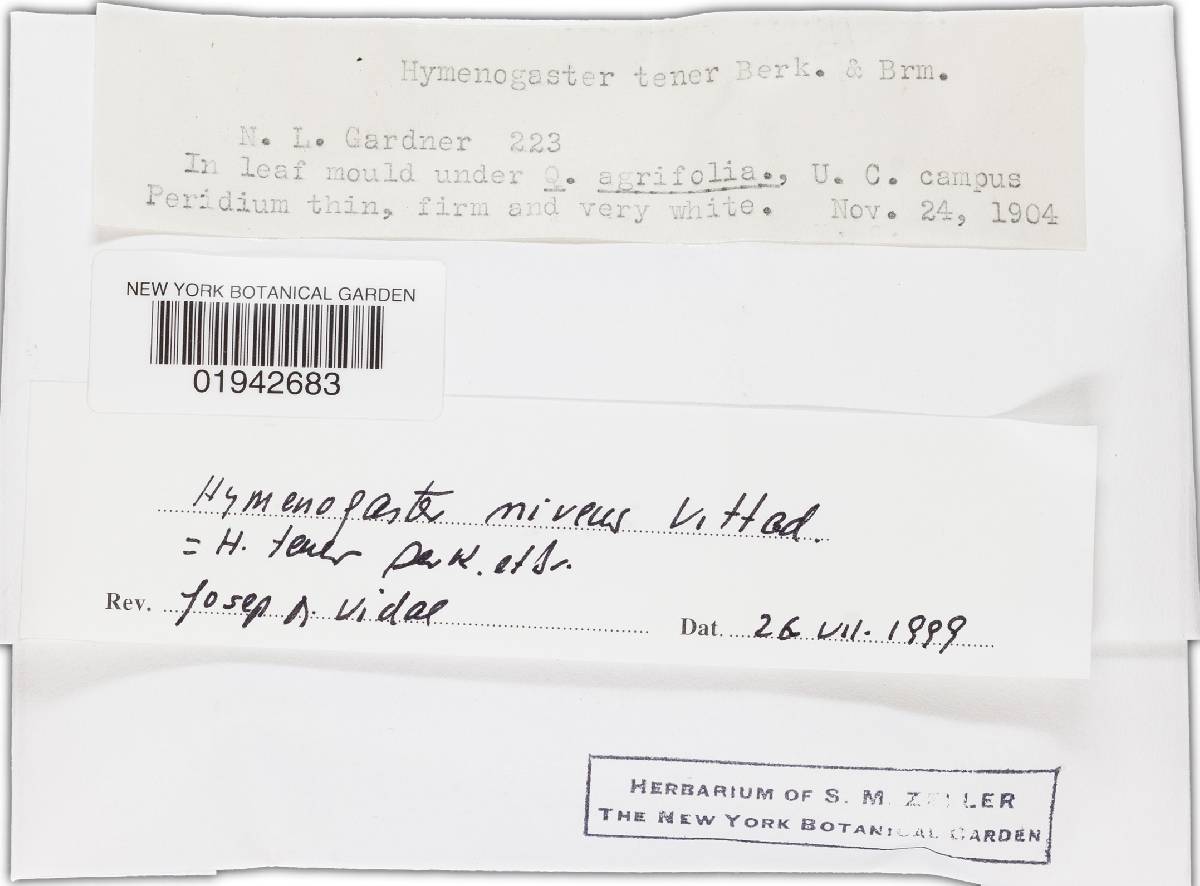 Hymenogaster tener Berk. & Brm.
N. L. Gardner 223
In leaf mould under Q. agrifolia., U. C. campus
Peridium thin, firm and very white. Nov. 24, 1904
NEW YORK BOTANICAL GARDEN
01942683
Hymenogaster niveus Vittad.
= H. tener Berk. et Br.
Rev. Josep M. Vidal Dat. 26 VII. 1999
HERBARIUM OF S. M. ZELLER
THE NEW YORK BOTANICAL GARDEN